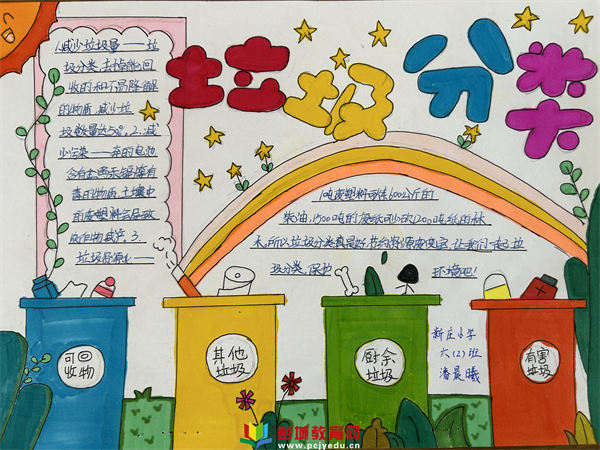 垃圾分类
1.减少垃圾量——垃
圾分类,去掉能回
收的和不易降解
的物质,减少垃
圾数量达50%。2.减
少污染——弃的电池
含有金属汞镉等有
毒的物质,土壤中
的废塑料会导致
农作物减产。3.
垃圾
1吨废塑料可炼600公斤的
柴油,1500吨的废纸可少砍1200吨纸的林
木,所以垃圾分类真是好,节约资源变废宝,让我们一起垃
圾分类,保护环境吧!
可回
收物
其他
垃圾
厨余
垃圾
有害
垃圾
新庄小学
六(2)班
潘晨曦
彭城教育网
www.pcjyedu.cn